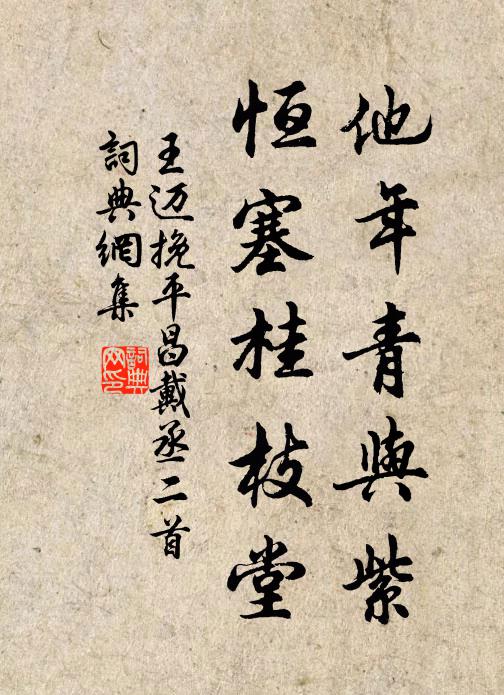 他年青與紫
恒塞桂枝堂
王迈挽平昌戴丞二首
詞典網集
詞典网印